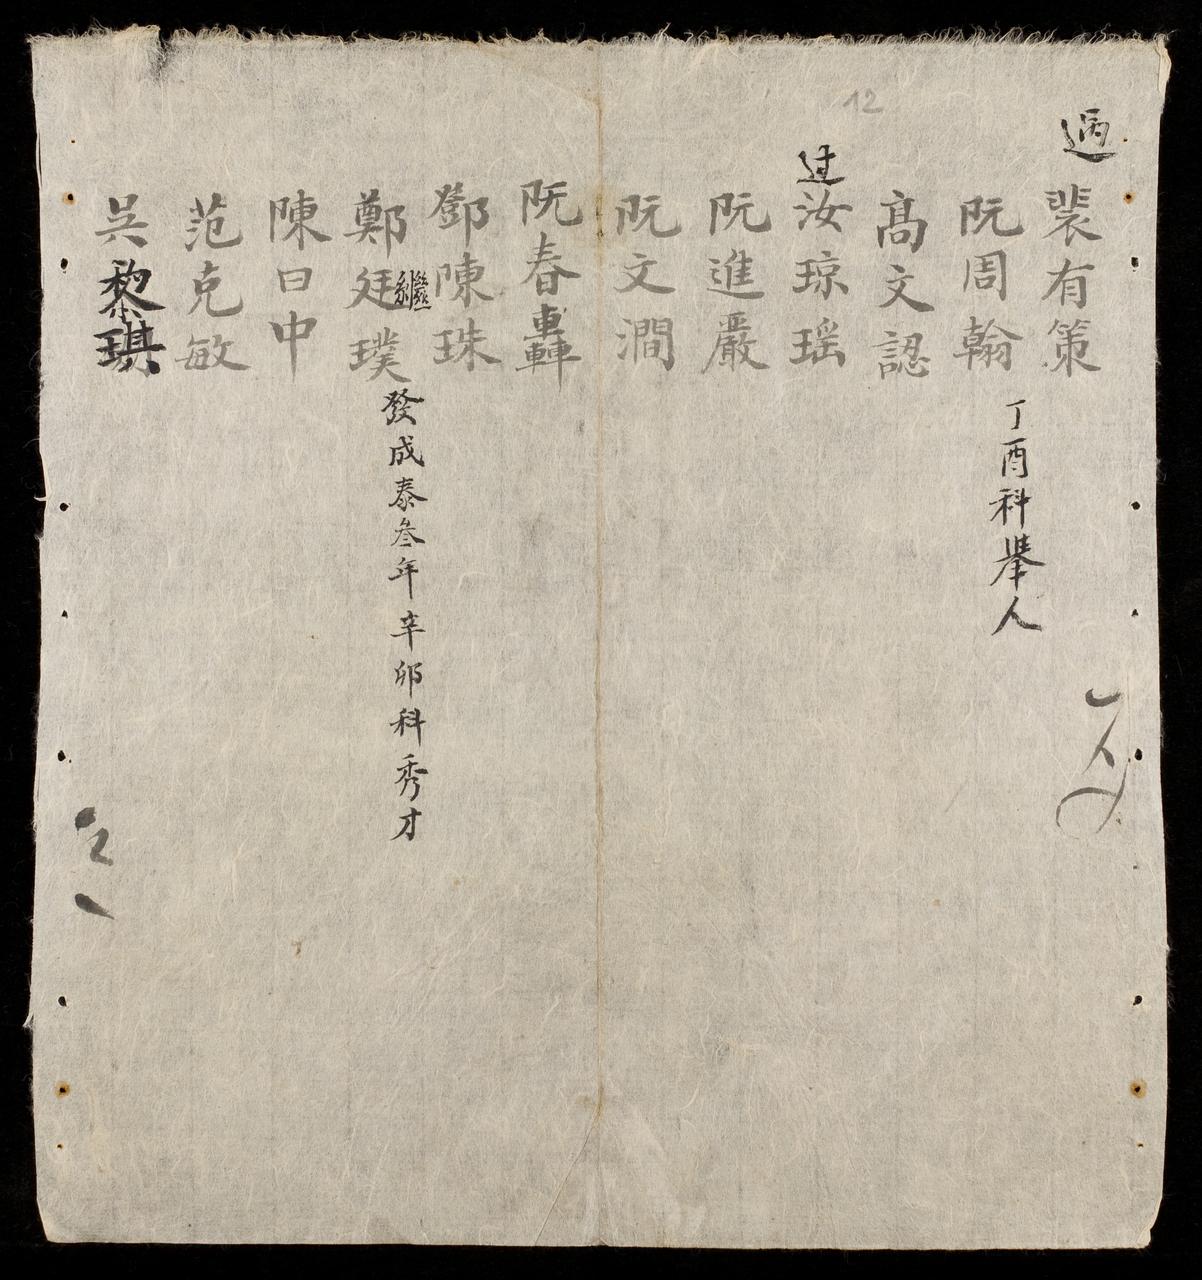 12
過
裴有策
阮周翰
丁酉科舉人
髙文認
过
汝琼瑶
阮進嚴
阮文澗
阮春轟
鄧陳珠
繼
鄭廷璞
發成泰叁年辛卯科秀才
陳曰中
范克敏
吳黎琪